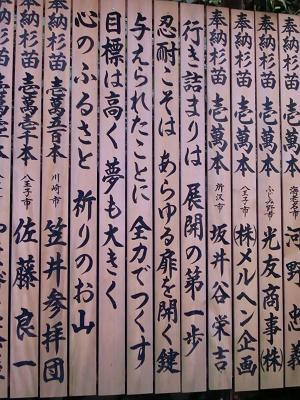 奉納杉苗 壱萬本 海老名市 河野忠義
奉納杉苗 壱萬本 ふじみ野市 光友商事㈱
奉納杉苗 壱萬本 八王子市 ㈱メルヘン企画
奉納杉苗 壱萬本 所沢市 坂井谷栄吉
行き詰まりは 展開の第一歩
忍耐こそは あらゆる扉を開く鍵
与えられたことに 全力でつくす
目標は高く 夢も大きく
心のふるさと 祈りのお山
奉納杉苗 壱萬二百本 川崎市 笠井参拝団
奉納杉苗 壱萬壱千本 八王子市 佐藤良一
奉納杉苗